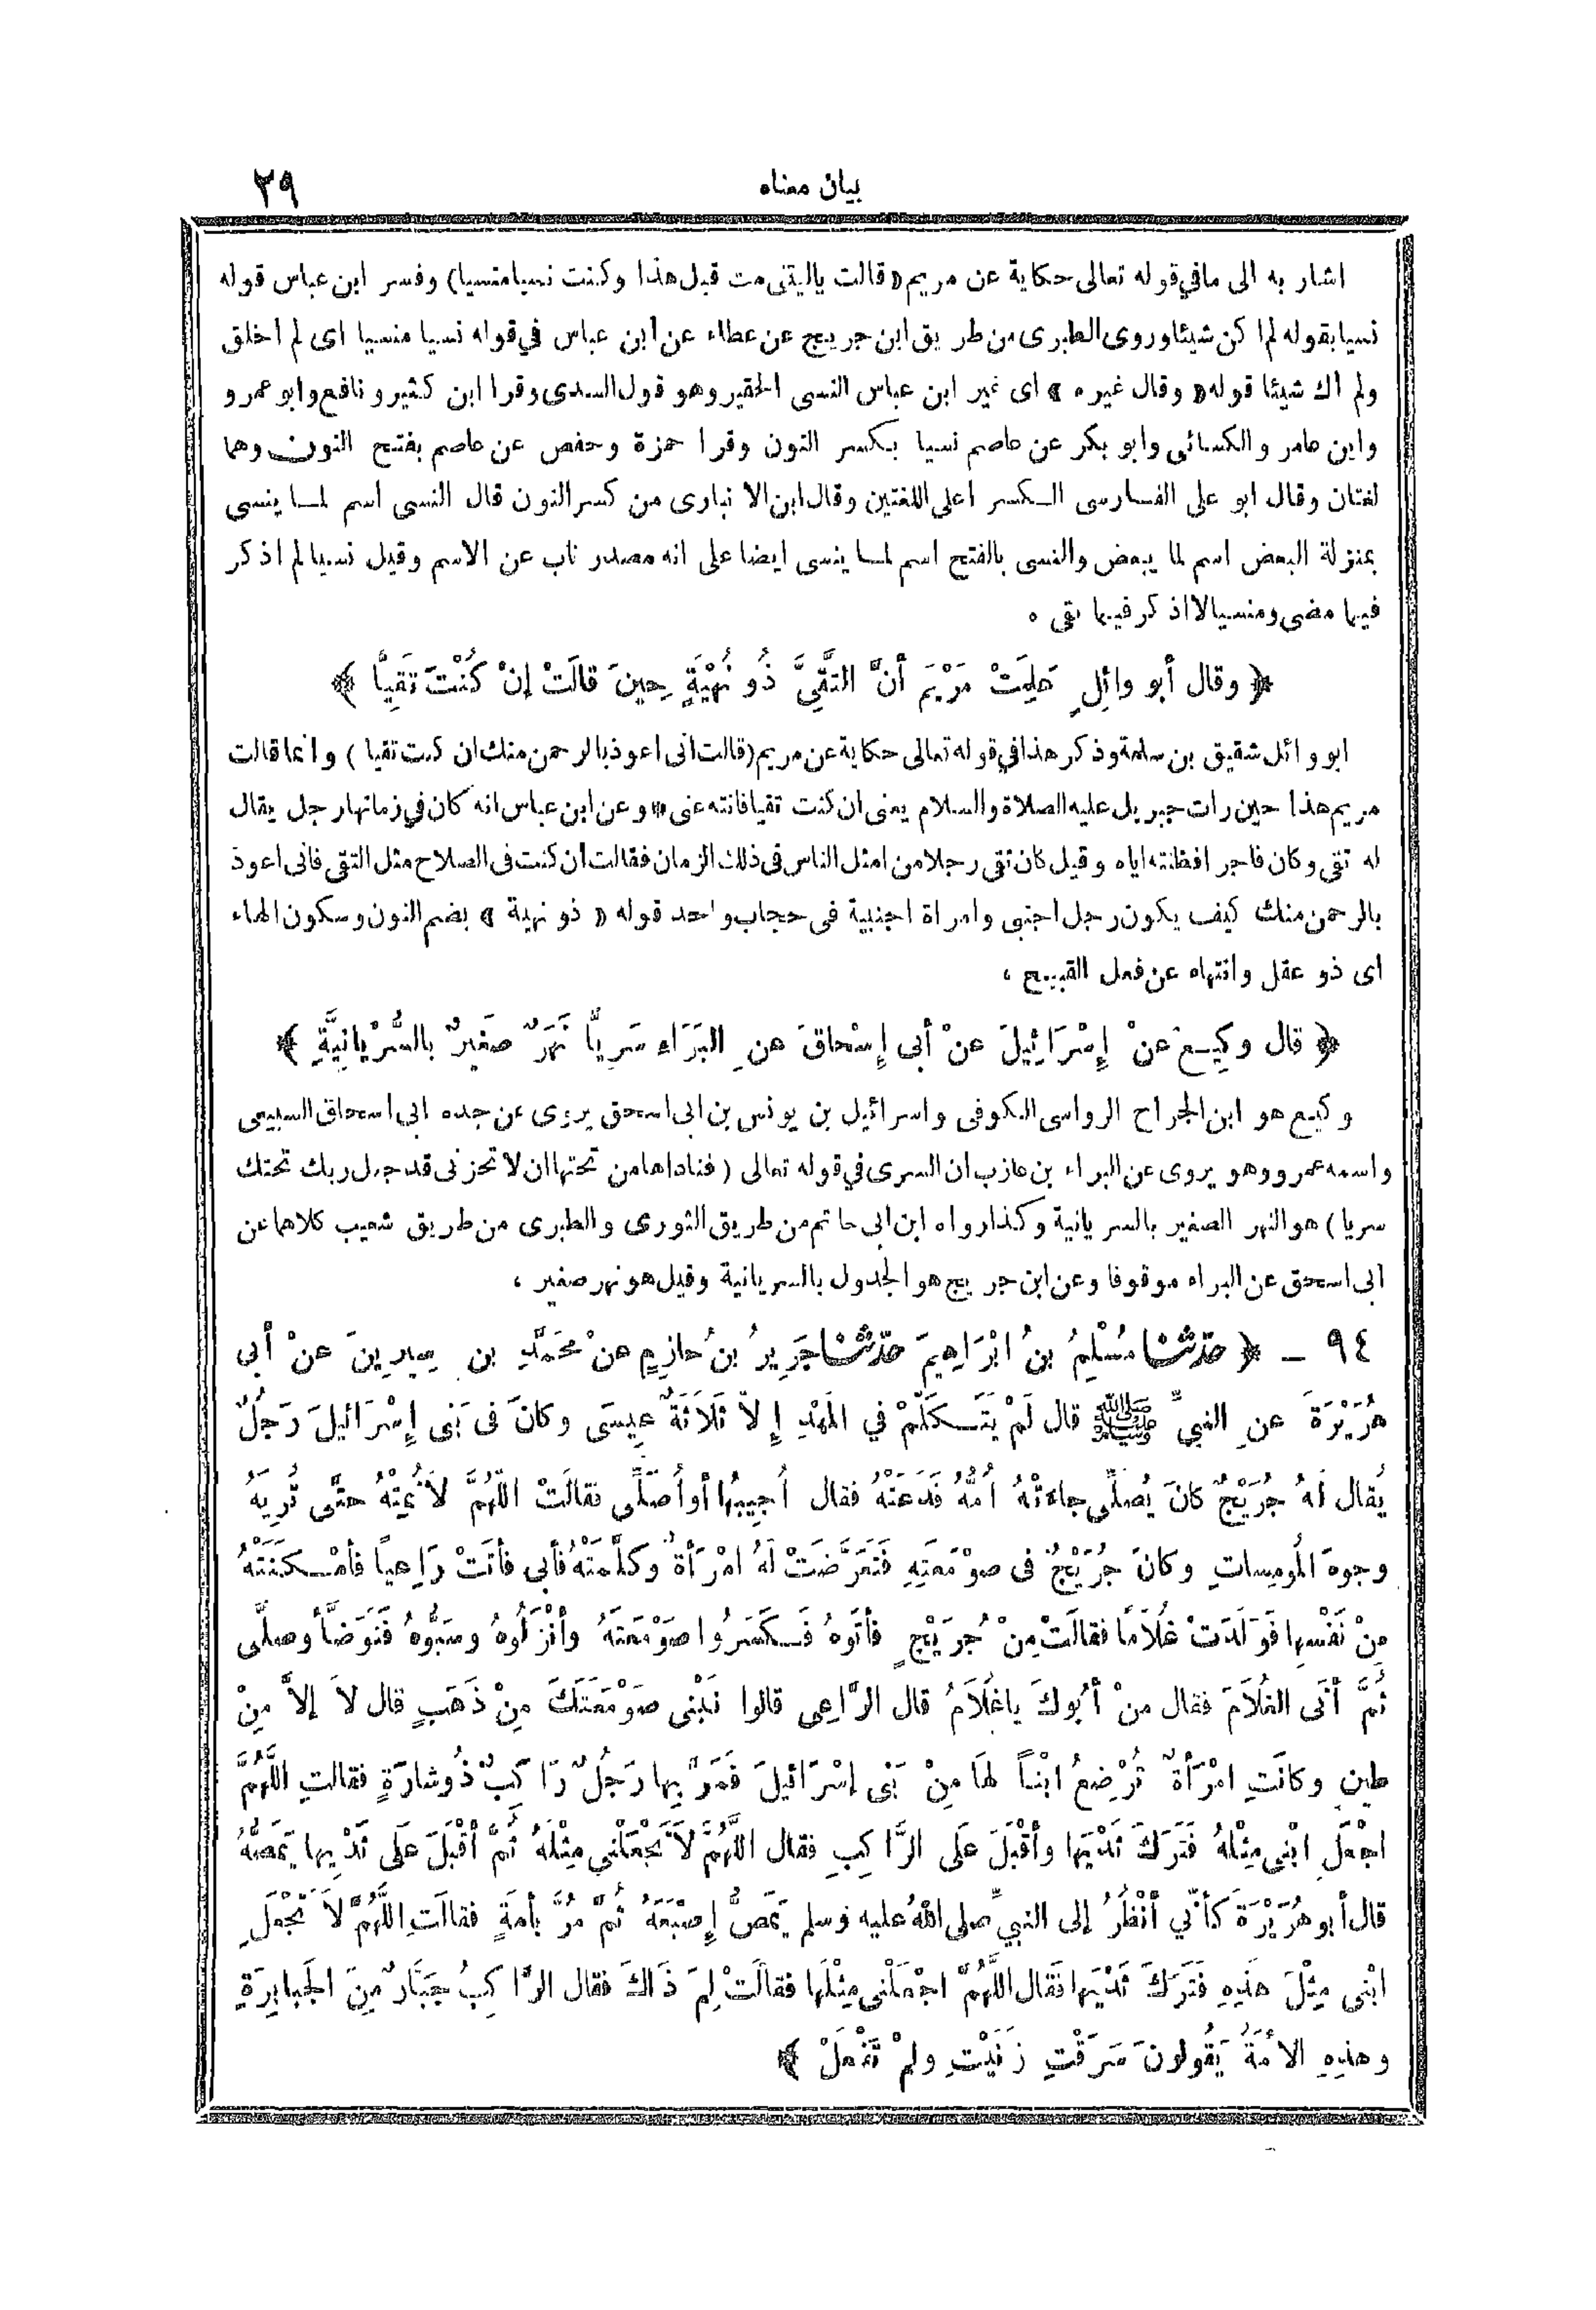 بيان معناه ٢٩
اشار به الى مافي قوله تعالى حكاية عن مريم «قالت ياليتنى مت قبل هذا وكنت نسيا منسيا) وفسر ابن عباس قوله
نسيا بقوله لم اكن شيئا وروى الطبرى من طريق ابن جريج عن عطاء عن ابن عباس في قوله نسيا منسيا اى لم اخلق
ولم اك شيئا قوله «وقال غيره» اى غير ابن عباس النسى الحقير وهو قول السدى وقرا ابن كثير ونافع وابو عمرو
وابن عامر والكسائى وابو بكر عن عاصم نسيا بكسر النون وقرا حمزة وحفص عن عاصم بفتح النون وهما
لغتان وقال ابو على الفارسى الكسر اعلى اللغتين وقال ابن الانبارى من كسر النون قال النسى اسم لما ينسى
بمنزلة البعض اسم لما يبعض والنسى بالفتح اسم لما ينسى ايضا على انه مصدر ناب عن الاسم وقيل نسيا لم اذكر
فيما مضى ومنسيا لا اذكر فيما بقى ٥
﴿ وقال أبو وائِلٍ عَلِمَتْ مَرْيَمَ أنَّ التَّقِيَّ ذُو نُهْيَةٍ حِينَ قالَتْ إنْ كُنْتَ تَقِيًّا ﴾
ابو وائل شقيق بن سلمة وذكر هذا في قوله تعالى حكاية عن مريم (قالت انى اعوذ بالرحمن منك ان كنت تقيا ) وانما قالت
مريم هذا حين رات جبريل عليه الصلاة والسلام يعنى ان كنت تقيا فانته عنى * وعن ابن عباس انه كان في زمانها رجل يقال
له تقى وكان فاجر افظنته اياه وقيل كان تقى رجلا من امثل الناس فى ذلك الزمان فقالت ان كنت فى الصلاح مثل التقى فانى اعوذ
بالرحمن منك كيف يكون رجل اجنبى وامراة اجنبية فى حجاب واحد قوله « ذو نهية » بضم النون وسكون الهاء
اى ذو عقل وانتهاه عن فعل القبيح ،
﴿ قال وكِيعٌ عنْ إِسْرَائِيلَ عنْ أبى إسْحاقَ عنِ البَرَاءِ سَرِيًّا نَهَرٌ صَغِيرٌ بالسُّرْيانِيَّةِ ﴾
وكيع هو ابن الجراح الرواسى الكوفى واسرائيل بن يونس بن ابى اسحق يروى عن جده ابى اسحاق السبيعى
واسمه عمرو وهو يروى عن البراء بن عازب ان السرى في قوله تعالى (فناداها من تحتها ان لا تحزنى قد جعل ربك تحتك
سريا) هو النهر الصغير بالسريانية وكذا رواه ابن ابى حاتم من طريق الثورى والطبرى من طريق شعيب كلاهما عن
ابى اسحق عن البراء موقوفا وعن ابن جريج هو الجدول بالسريانية وقيل هو نهر صغير ،
٩٤ - ﴿ حدّثنا مُسْلِمُ بنُ ابْرَاهِيمَ حدّثنا جَرِيرُ بنُ حازِمٍ عنْ مُحَمَّدِ بنِ سِيرِينَ عنْ أبى
هُرَيْرَةَ عنِ النبيِّ ﷺ قال لَمْ يَتَكَلَّمْ في المَهْدِ إلاَّ ثَلاَثَةٌ عِيسَى وكانَ فى بَنِى إسْرَائيلَ رَجُلٌ
يُقال لَهُ جُرَيْجٌ كانَ يُصَلِّى جاءَتْهُ أُمُّهُ فَدَعَتْهُ فقال أُجِيبُها أوأُصَلِّى فقالَتْ اللَّهُمَّ لاَ تُمِتْهُ حتَّى تُرِيَهُ
وجوهَ المُومِساتِ وكانَ جُرَيْجٌ فى صَوْمَعَتِهِ فَتَعَرَّضَتْ لَهُ امْرَأةٌ وكَلَّمَتْهُ فأبى فأتَتْ رَاعِياً فأمْكَنَتْهُ
مِنْ نَفْسِها فَوَلَدَتْ غُلاَمًا فقالَتْ مِنْ جُرَيْجٍ فأتَوْهُ فَكَسَرُوا صَوْمَعَتَهُ وأنْزَلُوهُ وسَبُّوهُ فَتَوَضَّأ وصلَّى
ثُمَّ أتَى الغُلاَمَ فقال منْ أبُوكَ ياغُلاَمُ قال الرَّاعِى قالوا نَبْنِى صَوْمَعَتَكَ مِنْ ذَهَبٍ قال لاَ إلاَّ مِنْ
طِينٍ وكانَتِ امْرَأةٌ تُرْضِعُ ابْناً لهَا مِنْ بَنِى إسْرَائيلَ فَمَرَّ بِها رَجُلٌ رَاكِبٌ ذُوشارَةٍ فقالتِ اللَّهُمَّ
اجْعَلِ ابْنِى مِثْلَهُ فَتَرَكَ ثَدْيَها وأقْبَلَ عَلَى الرَّاكِبِ فقال اللَّهُمَّ لاَ تَجْعَلْنى مِثْلَهُ ثُمَّ أقْبَلَ عَلَى ثَدْيِها يَمَصُّهُ
قال أبو هُرَيْرَةَ كأنِّي أنْظُرُ إلى النبيِّ صلى اللهُ عليه وسلم يَمَصُّ إصْبَعَهُ ثُمَّ مُرَّ بأمَةٍ فقالَتِ اللَّهُمَّ لاَ تَجْعَلِ
ابْنِى مِثْلَ هَذِهِ فَتَرَكَ ثَدْيَها فَقال اللَّهُمَّ اجْعَلْنى مِثْلَها فقالَتْ لِمَ ذَاكَ فقال الرَّاكِبُ جَبَّارٌ مِنَ الجَبابِرَةِ
وهذِهِ الأمَةُ يَقُولونَ سَرَقْتِ زَنَيْتِ ولمْ تَفْعَلْ ﴾